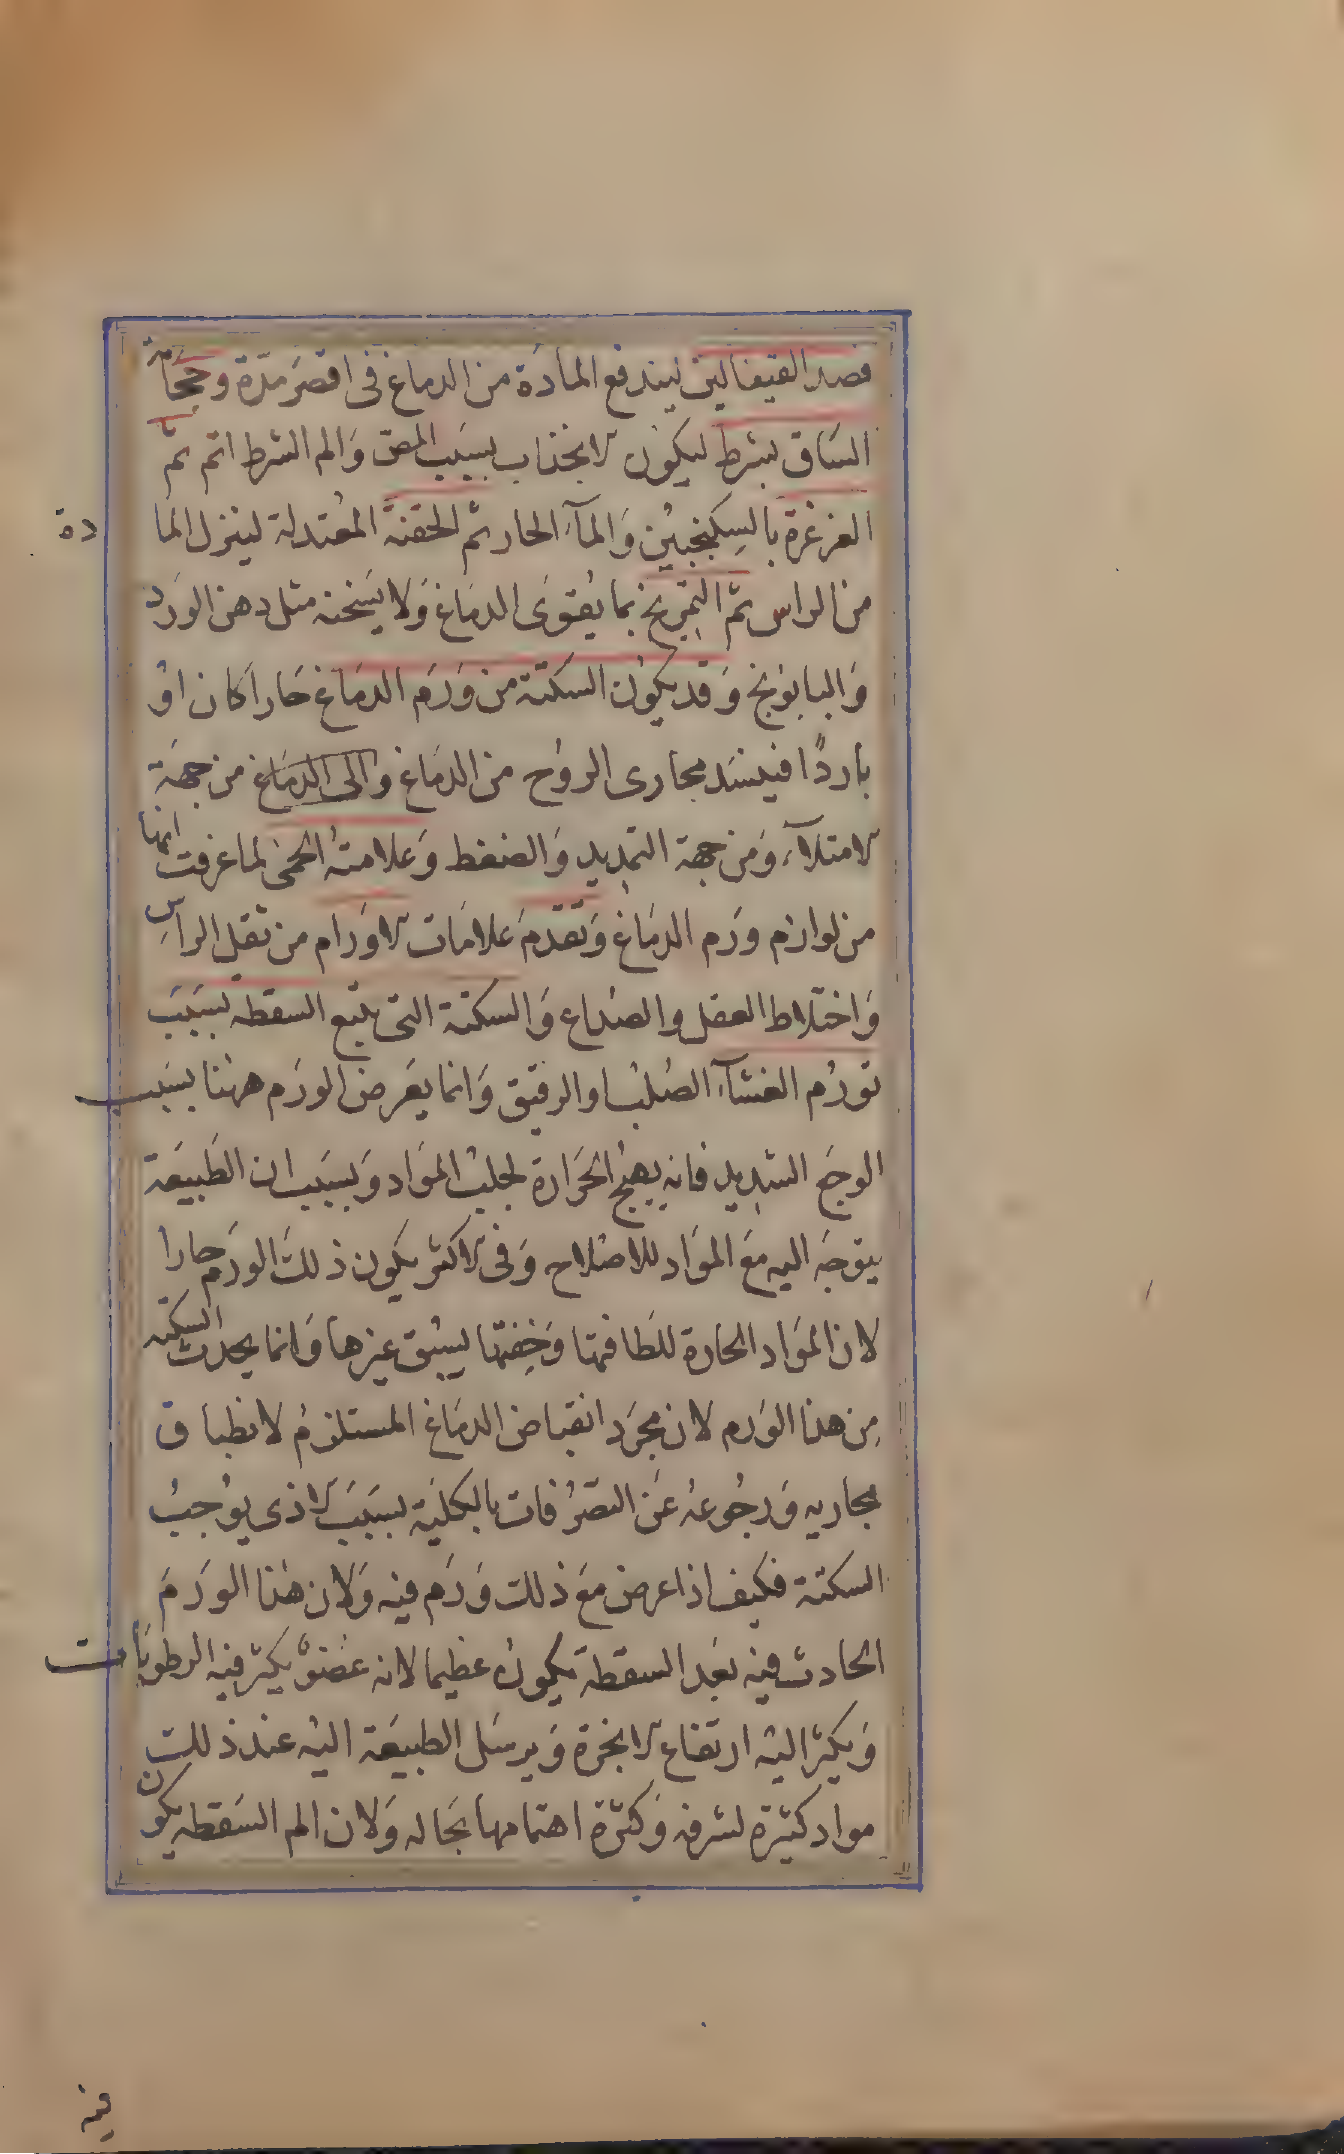 فصد القيفالين ليندفع المادة من الدماغ فى اقصر مدّة وحجامة
السَاق بشرط ليكون الانجذاب بسبَب المصّ وَالم الشرط اتم ثم
الغرغرة بالسِكنجبين وَالمآء الحار ثم الحقنة المعُتدلة لينزل الما
دة
من الراس ثم التمريخ بما يقوىَ الدمَاغ وَلا يسَخنه مثل دهن الورَد
وَالبابونج وَقد يكوُن السَكتة من وَرَم الدمَاغ حَارا كان اوْ
باردًا فينسَد مجارى الروُح من الدمَاغ والى الدمَاغ من جهَة
الامتلآء وَمن جهة التمديد وَالضغط وَعلامتهُ الحمى لما عرفت انها
من لوازم ورَم الدمَاغ وَتقدمَ علامَات الاورَام من ثقل الراسِ
وَاختلاط العقل والصدُاع وَالسكتة التى يتبع السقطة بسَبَبَ
تورمُ الغشآء الصُلب او الرقيق وَانما يعَرض الورَم ههنا بسَبب
الوجَع الشديد فانه يهيّج الحَرَارة لجلب الموَاد وَبسبَب ان الطَبيعَة
يتوجَه اليه مَع الموَاد للاصلاح وَفى الاكثر يكون ذلك الورَم حارا
لان الموَاد الحارة للَطافتها وَخِفتها يسبُق غيرها وَانما يحدث السكتة
مِن هذا الوَرم لان مجرَد انقباض الدمَاغ المستلزمُ لانطباق
مجاريه وَرجُوعهُ عَن التصَرُفات بالكليَة بسَبَبَ الاذى يوُجبُ
السكتة فكيف اذا عرض مَع ذلك وَرَم فيه وَلان هٰذا الورَمَ
الحادث فيه بعَد السقطة يكونُ عظيما لانه عضوٌ يكثر فيه الرطوبَات
وَيكثر اليه ارتفاع الابخرة وَيرسَل الطبيعَة اليْه عند ذلك
مواد كثيَرة لشرفه وَكثرَة اهتمامها بحَاله وَلان الم السَقطة يكون
فيه